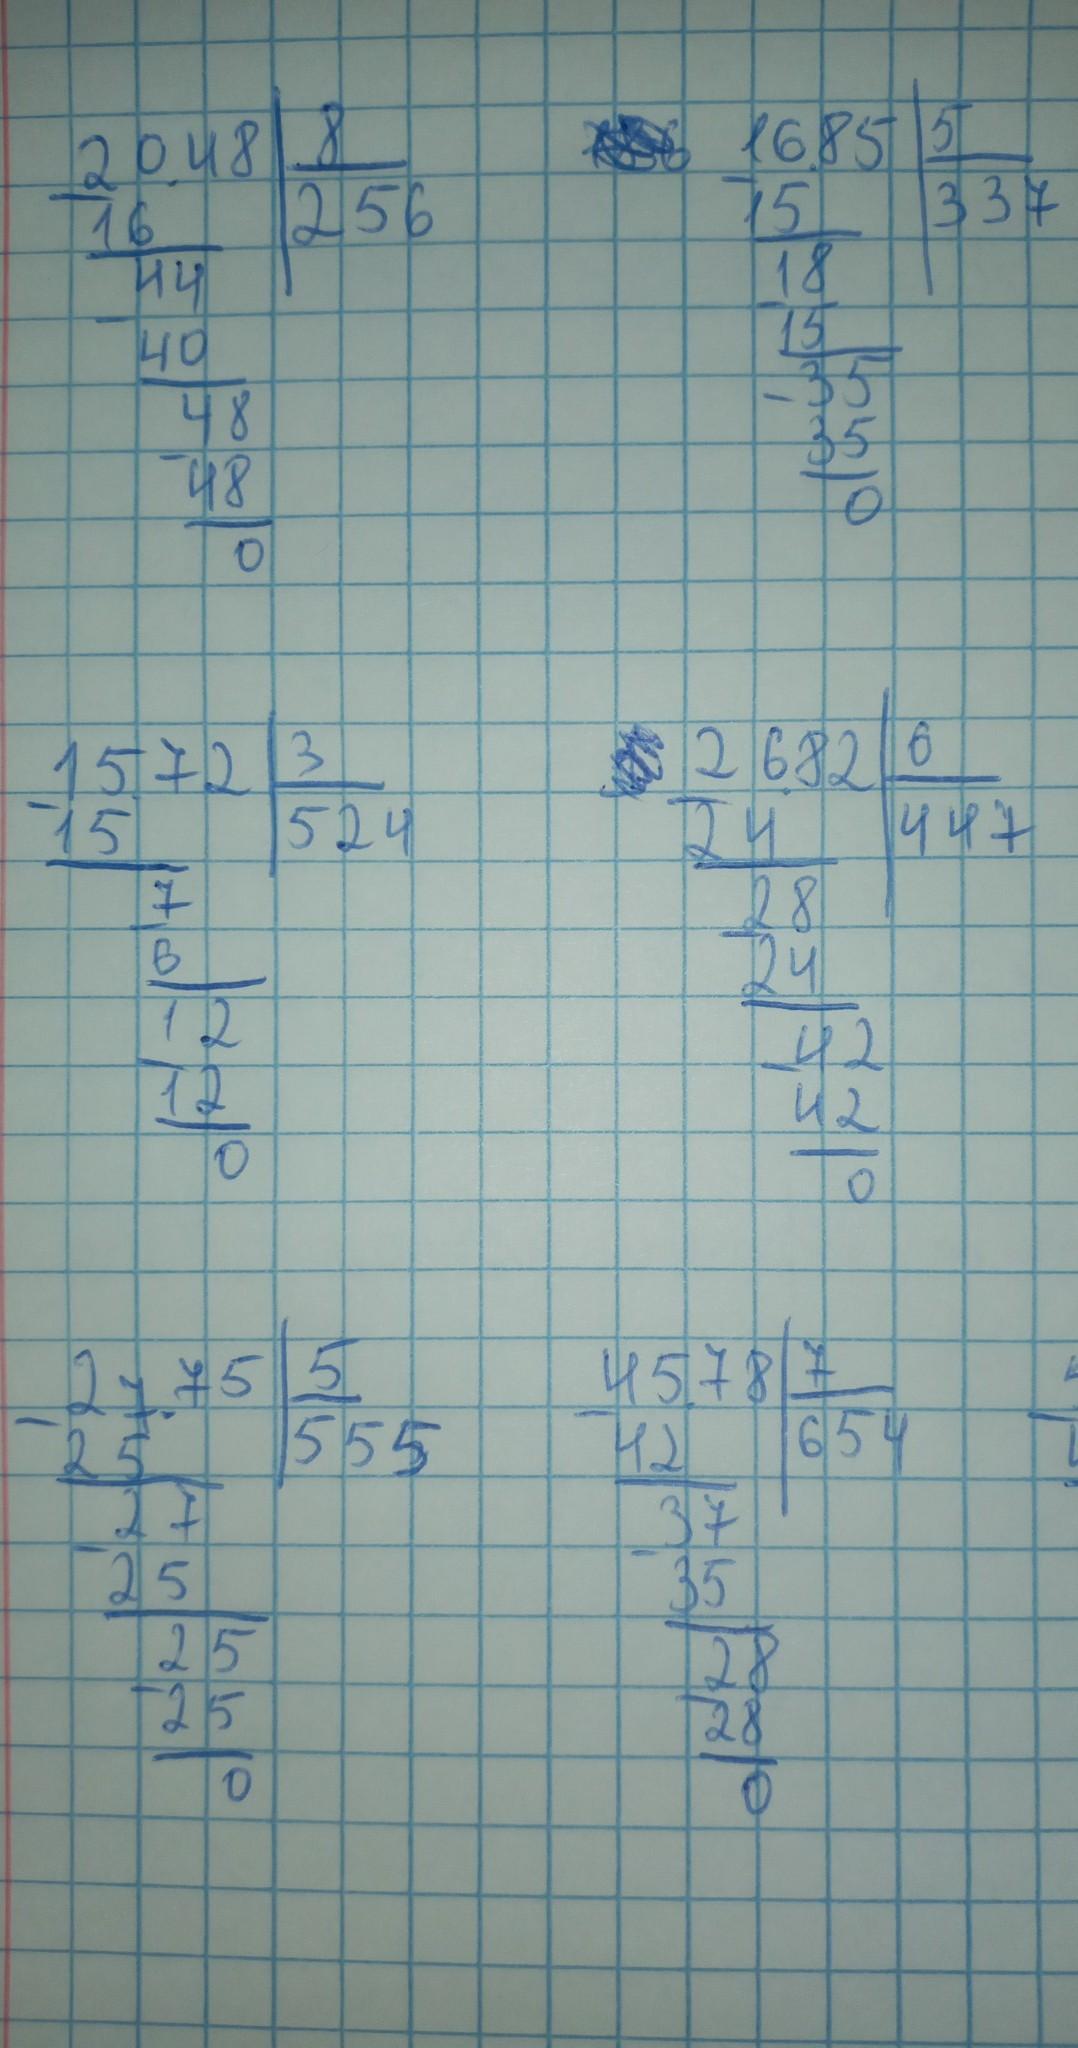 20.48 8
16 256
44
40
48
48
0
16.85 5
15 337
18
15
35
35
0
15.72 3
15 524
7
6
12
12
0
26.82 6
24 447
28
24
42
42
0
27.75 5
25 555
27
25
25
25
0
45.78 7
42 654
37
35
28
28
0